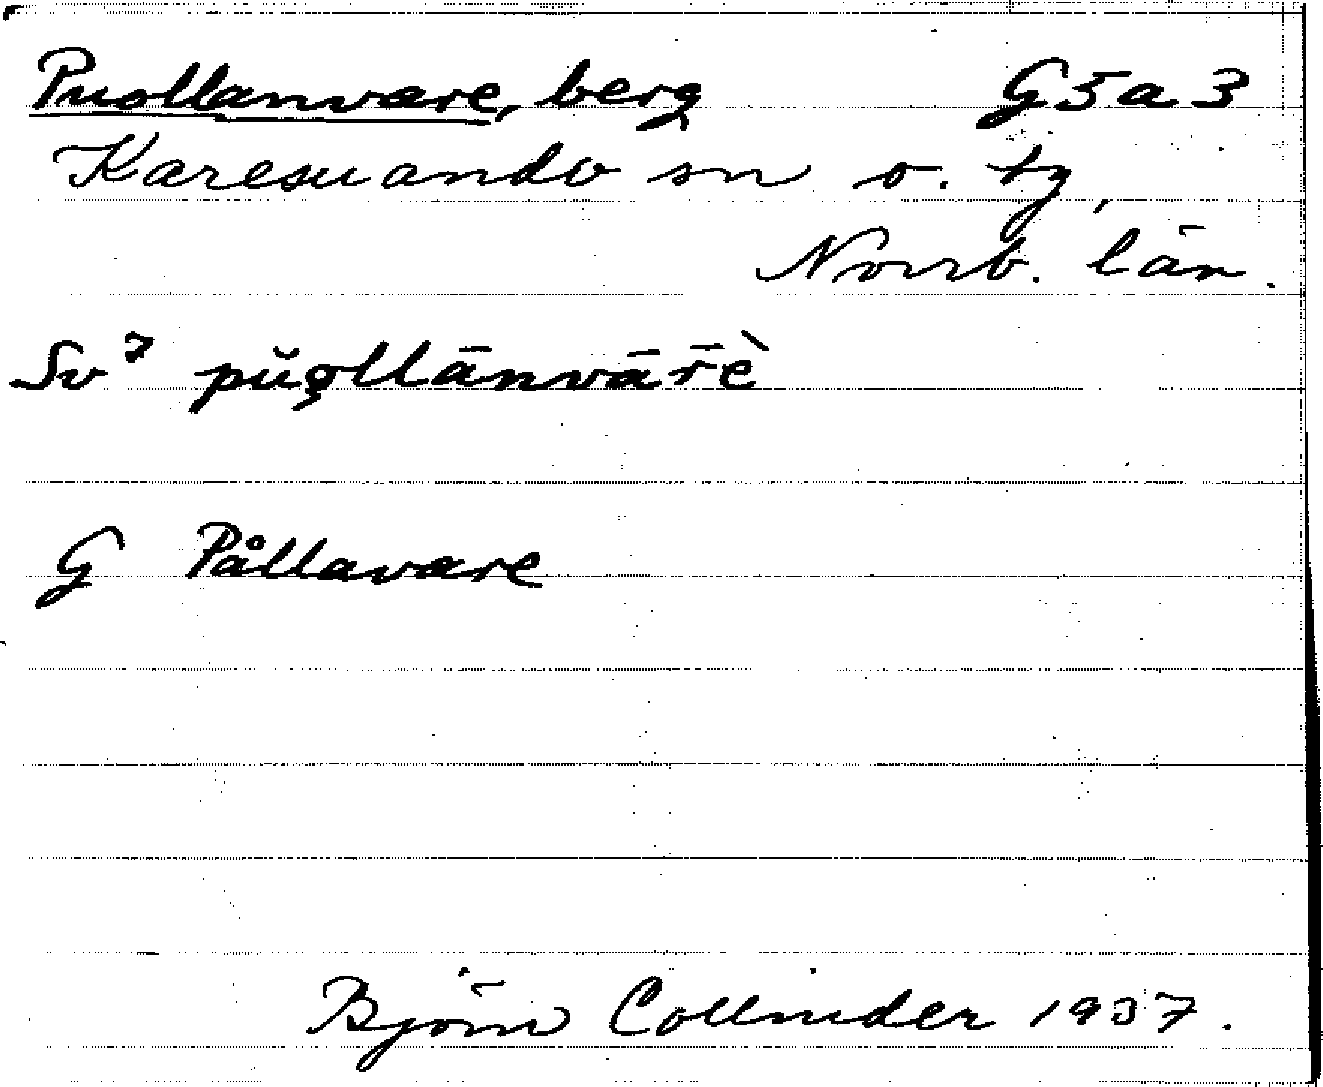 Puollanvare, berg G5a3
Karesuando sn o. tg,
Norrb. län.
Sv⁷ pŭo̧llānvār̄è
G Pållavare
Björn Collinder 1937.